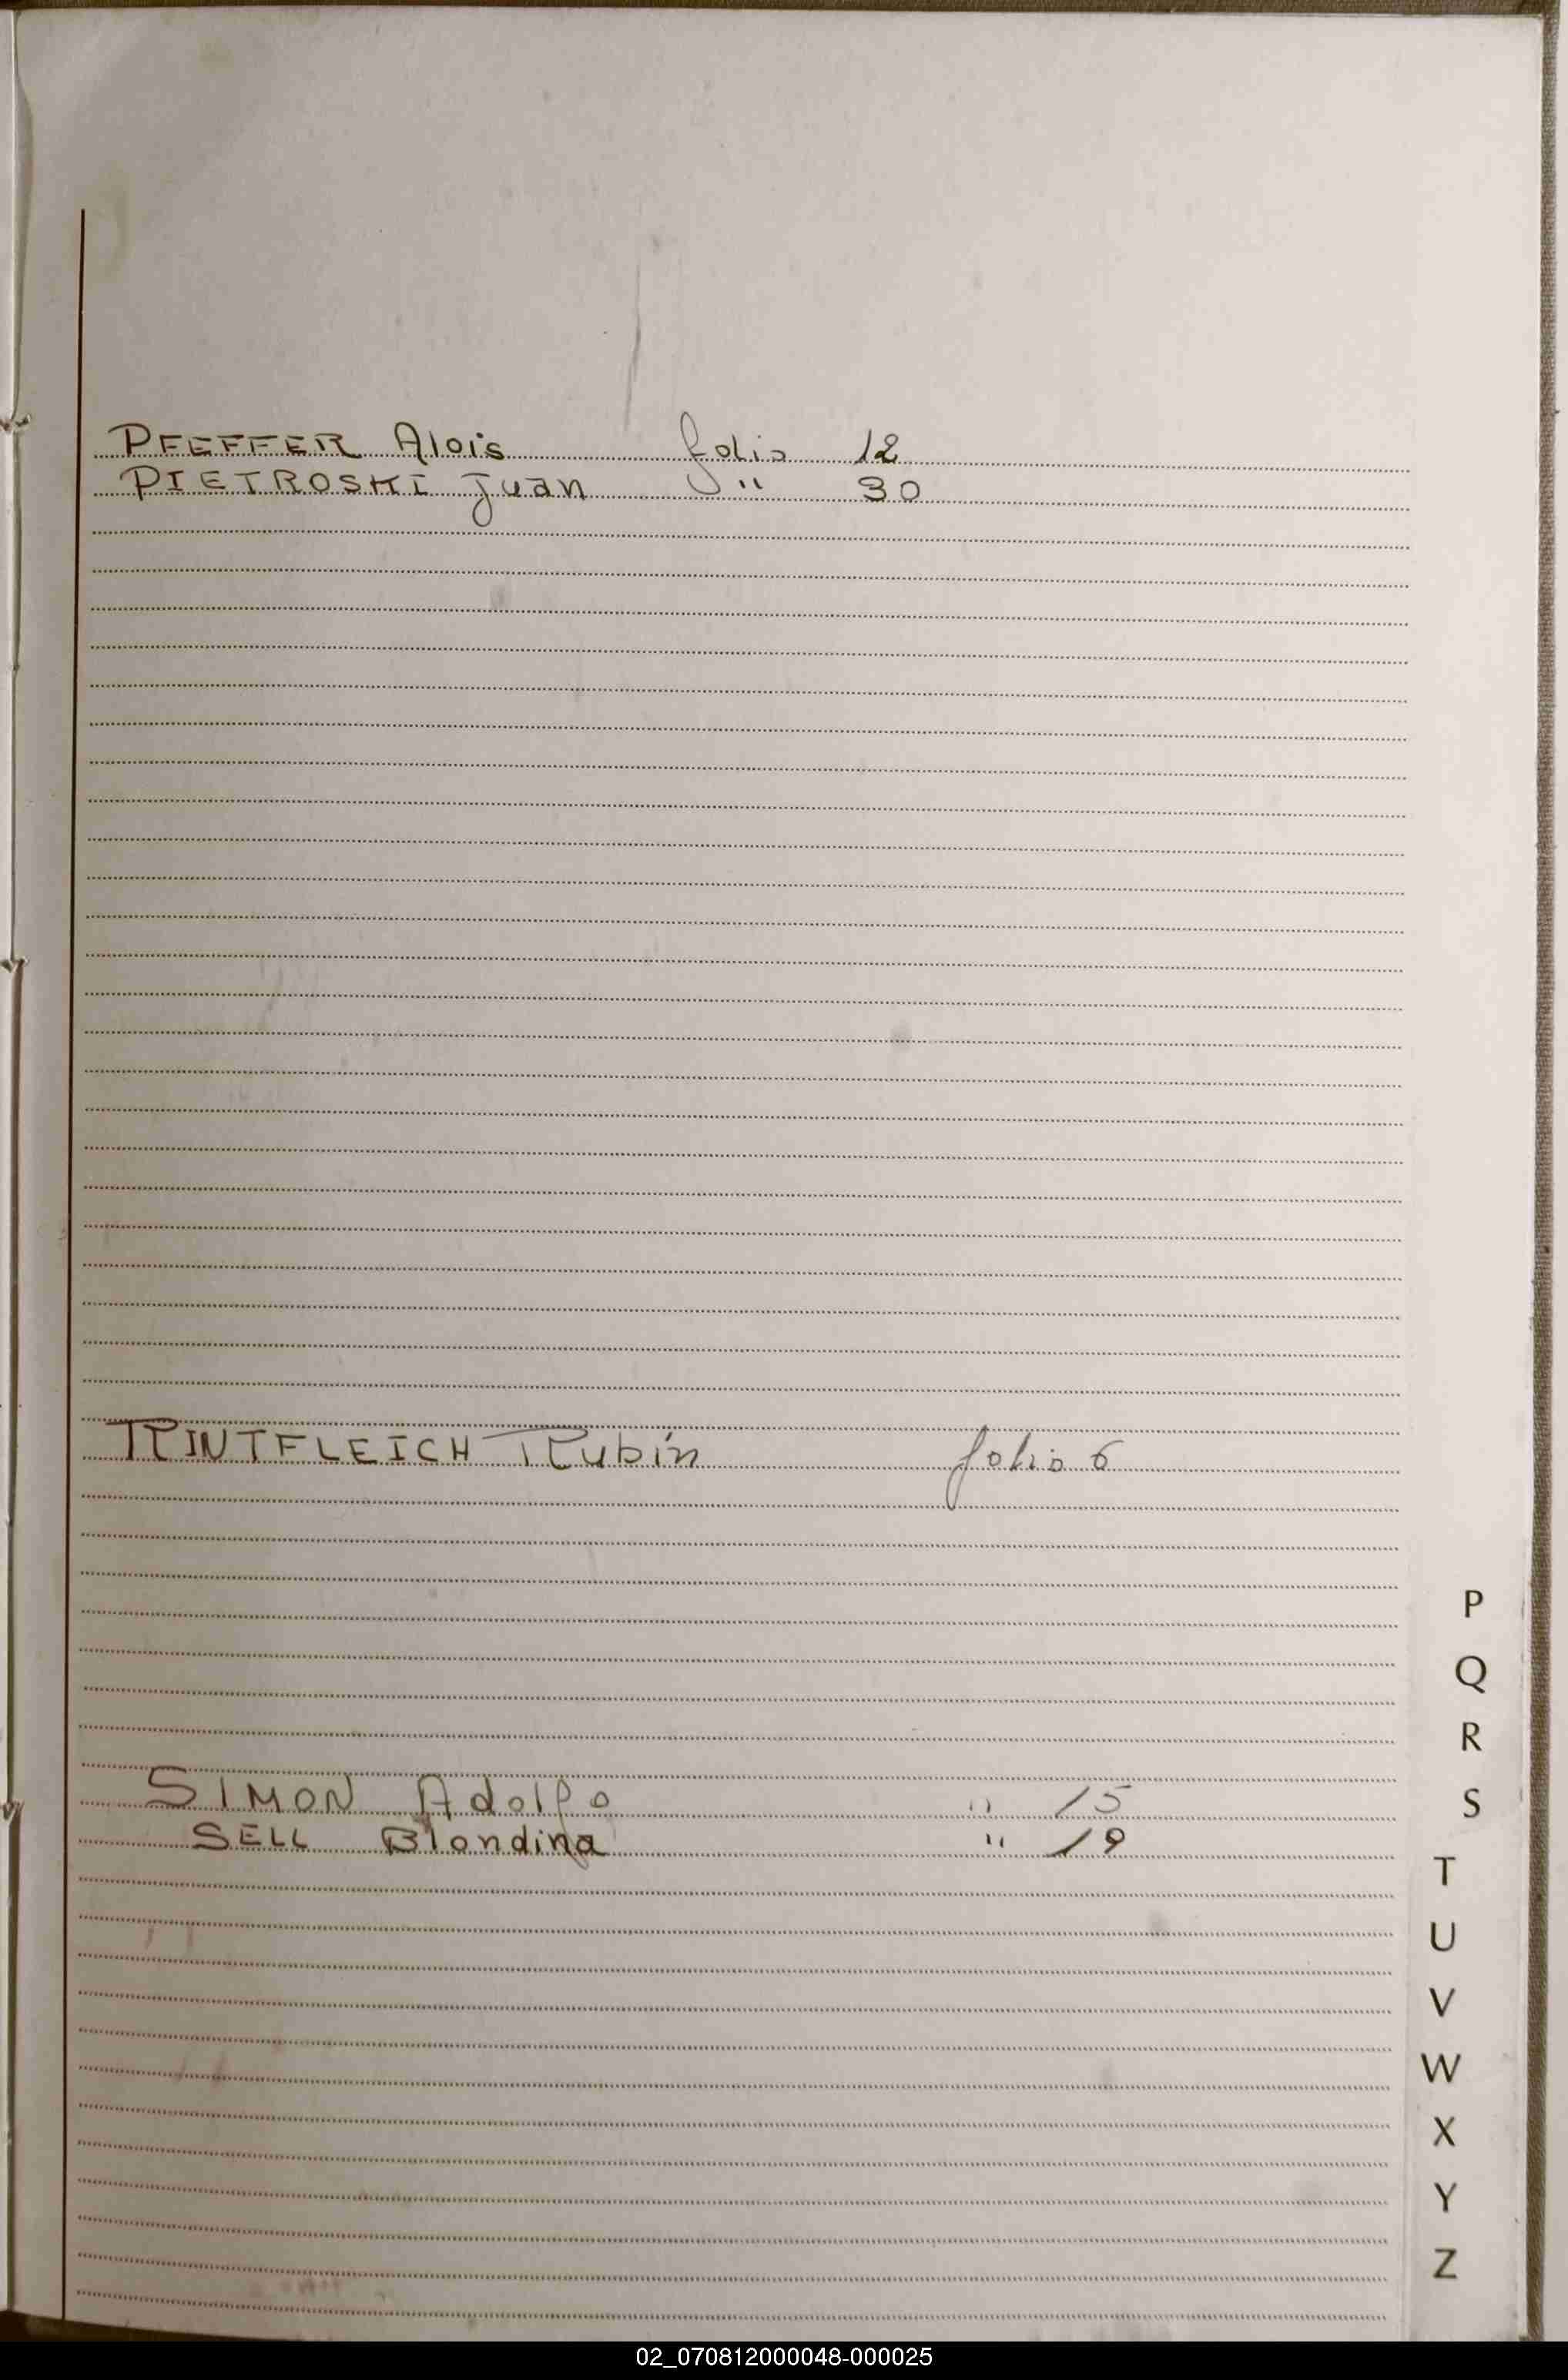 PFEFFER Alois folio 12
PIETROSKI Juan " 30
RINTFLEICH Rubín folio 6
SIMON Adolfo " 15
SELL Blondina " 19
P
Q
R
S
T
U
V
W
X
Y
Z
02_070812000048-000025